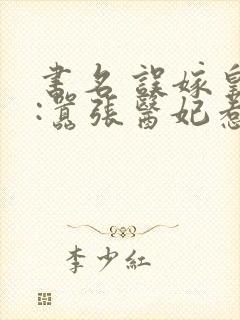 书名誤嫁皇
:囂張醫妃惹
李少紅